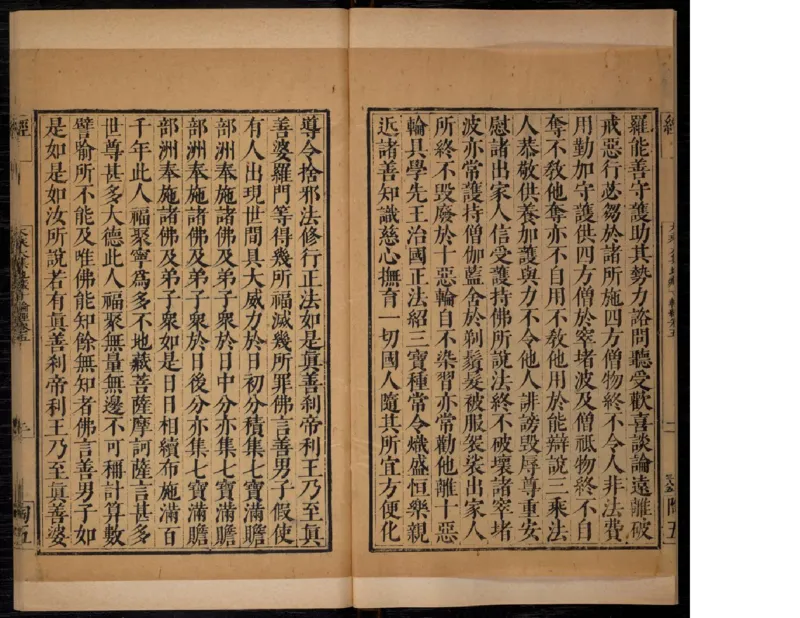 羅能善守護助其勢力諮問聽受歡喜談論遠離破
戒惡行苾芻於諸所施四方僧物終不令人非法費
用勤加守護供四方僧於窣堵波及僧祇物終不自
奪不敎他奪亦不自用不敎他用於能辯說三乘法
人恭敬供養加護與力不令他人誹謗毀辱尊重安
慰諸出家人信受護持佛所說法終不破壞諸窣堵
波亦常護持僧伽藍舍於剃鬚髮被服袈裟出家人
所終不毀廢於十惡輪自不染習亦常勸他離十惡
輪具學先王治國正法紹三寶種常令熾盛恒樂親
近諸善知識慈心撫育一切國人隨其所宜方便化
經
陶五
導令捨邪法修行正法如是眞善刹帝利王乃至眞
善婆羅門等得幾所福滅幾所罪佛言善男子假使
有人出現世間具大威力於日初分積集七寶滿贍
部洲奉施諸佛及弟子衆於日中分亦集七寶滿贍
部洲奉施諸佛及弟子衆於日後分亦集七寶滿贍
部洲奉施諸佛及弟子衆如是日日相續布施滿百
千年此人福聚寧爲多不地藏菩薩摩訶薩言甚多
世尊甚多大德此人福聚無量無邊不可稱計算數
譬喻所不能及唯佛能知餘無知者佛言善男子如
是如是如汝所說若有眞善刹帝利王乃至眞善婆
經
陶五